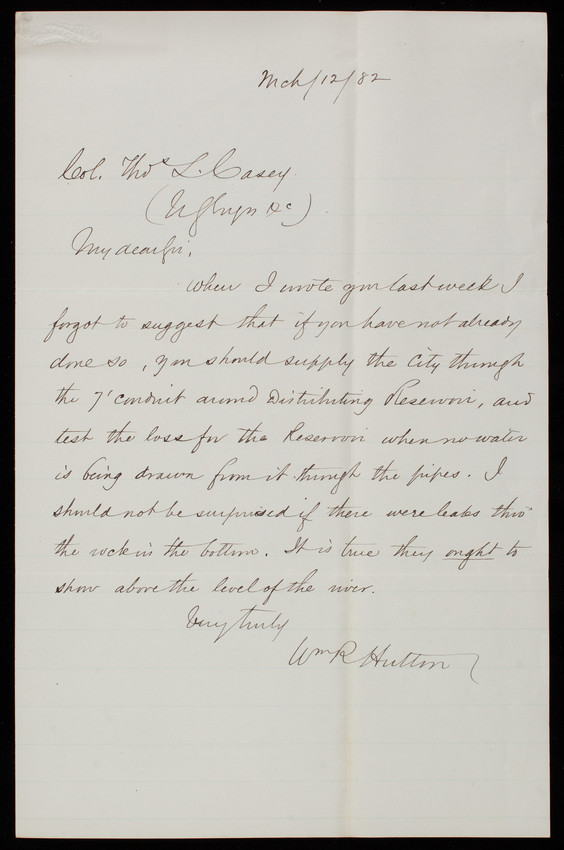 Mch/12/82
Col. Thos L. Casey.
(U S Engrs &c)
My dear Sir,
When I wrote you last week I
forgot to suggest that if you have not already
done so, you should supply the City through
the 7' conduit around Distributing Reservoir, and
test the loss for the Reservoir when no water
is being drawn from it through the pipes. I
should not be surprised if there were leaks thro'
the rock in the bottom. It is true they ought to
show above the level of the river.
Very truly
Wm R Hutton